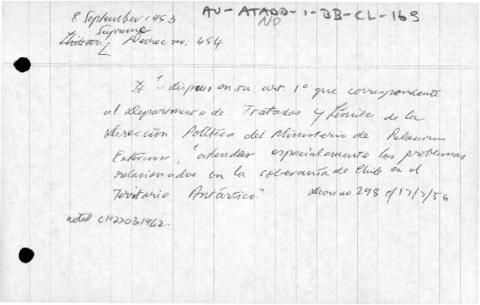 8 September 1953
AU-ATADD-1-BB-CL-163
NO
Supreme
Decree no. 454
It "- dispuso en su art. 1º que corresponde
al Departamento de Tratados y Límites de la
Dirección Política del Ministerio de Relaciones
Exteriores, "atender especialmente los problemas
relacionados con la soberanía de Chile en el
Territorio Antártico" decree no 298 of 17/7/56
noted CH22031962.